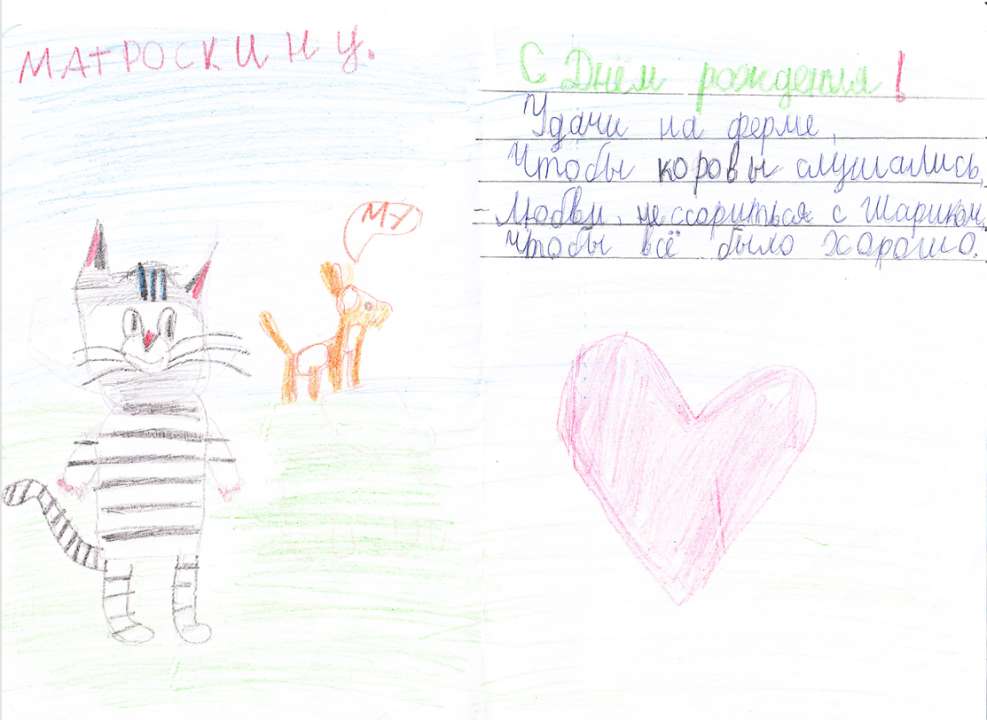 МАТРОСКИНУ.
МУ
С Днём рождения!
Удачи на ферме,
Чтобы коровы слушались,
Любви, не ссориться с Шариком,
Чтобы всё было хорошо.